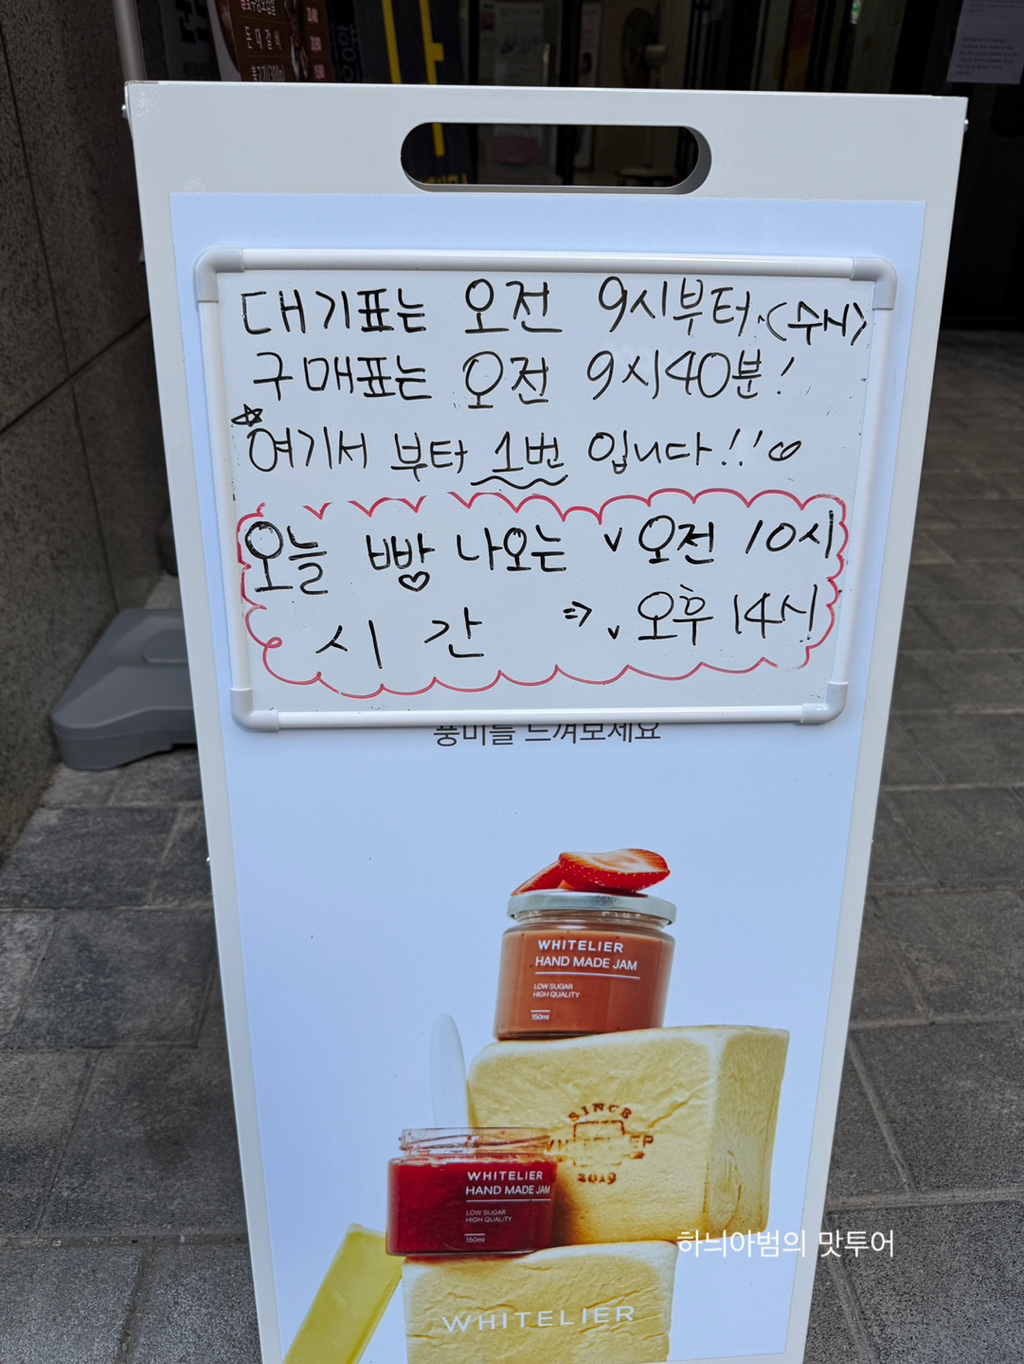 대기표는 오전 9시부터~(수시)
구매표는 오전 9시40분!
☆여기서 부터 1번 입니다!!♡
오늘 빵 나오는 ✓ 오전 10시
시간 => ✓ 오후 14시
풍미를 느껴보세요
WHITELIER
HAND MADE JAM
LOW SUGAR
HIGH QUALITY
150ml
SINCE
WHITELIER
2019
WHITELIER
HAND MADE JAM
LOW SUGAR
HIGH QUALITY
150ml
하늬아범의 맛투어
WHITELIER